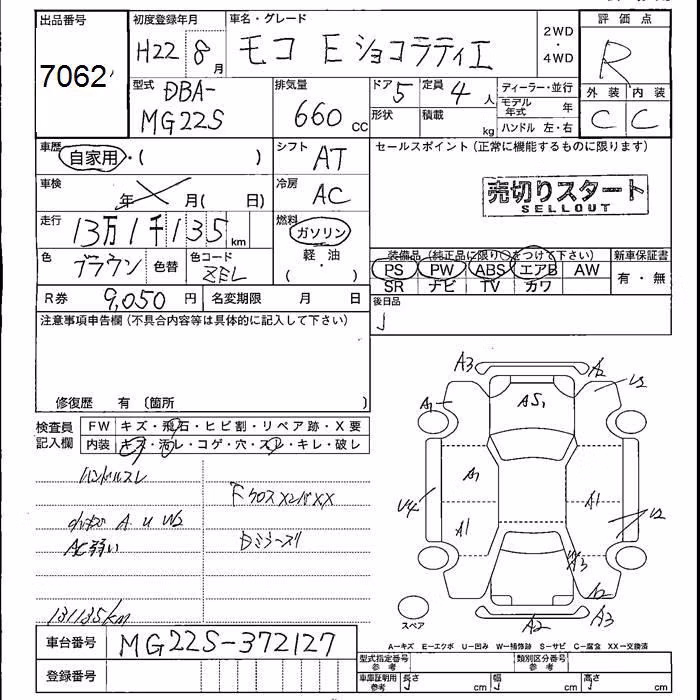 出品番号 初度登録年月 車名・グレード 2WD・4WD 評価点
7062 H22 8月 モコ E ショコラティエ R
型式 DBA-MG22S 排気量 660cc ドア 5 定員 4人 ディーラー・並行 外装 内装
形状 積載 kg モデル年式 年 C C
ハンドル 左・右
車歴 自家用・( ) シフト AT セールスポイント(正常に機能するものに限ります)
車検 年 月( 日) 冷房 AC 売切りスタート
SELLOUT
走行 13万1千135km 燃料 ガソリン・軽油・( )
装備品(純正品に限り○をつけて下さい) 新車保証書
色 ブラウン 色替 色コード ZEL PS PW ABS エアB AW 有・無
SR ナビ TV カワ
R券 9,050円 名変期限 月 日 後日品
注意事項申告欄(不具合内容等は具体的に記入して下さい)
修復歴 有〔箇所 〕
検査員記入欄 FW キズ・飛石・ヒビ割・リペア跡・X要
内装 キズ・汚レ・コゲ・穴・スレ・キレ・破レ
ハンドルスレ
A U W2
AC弱い
131135km
A3 A2 U2
A1 AS1
A1 A1
U4 A1 U2
A3
A2
A2 A3
スペア
A-キズ E-エクボ U-凹み W-補修跡 S-サビ C-腐食 XX-交換済
車台番号 MG22S-372127
型式指定番号参考 類別区分番号参考
登録番号 車庫証明用参考 長さ cm 幅 cm 高さ cm